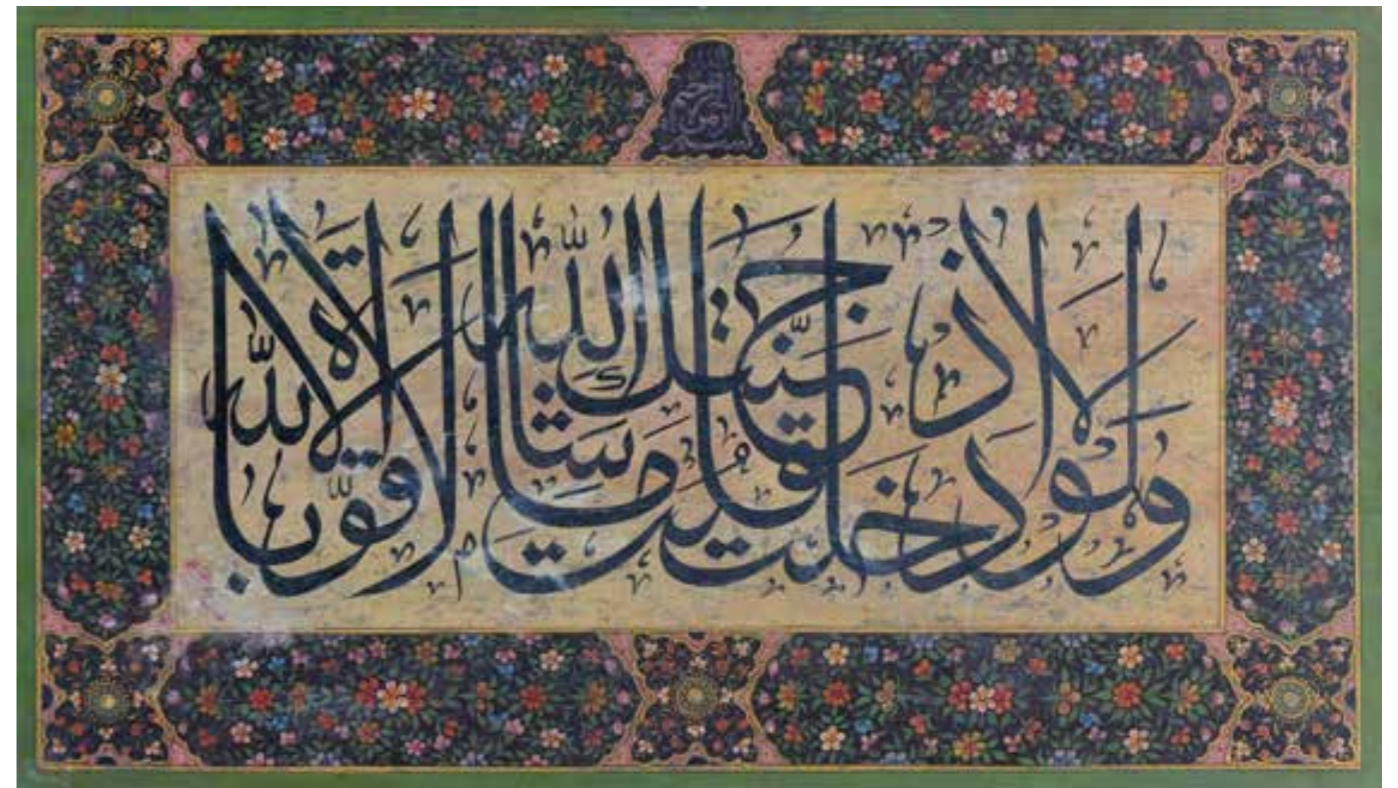 بسم الله الرحمن الرحيم
ولولا إذ دخلت جنتك قلت ما شاء الله لا قوة إلا بالله